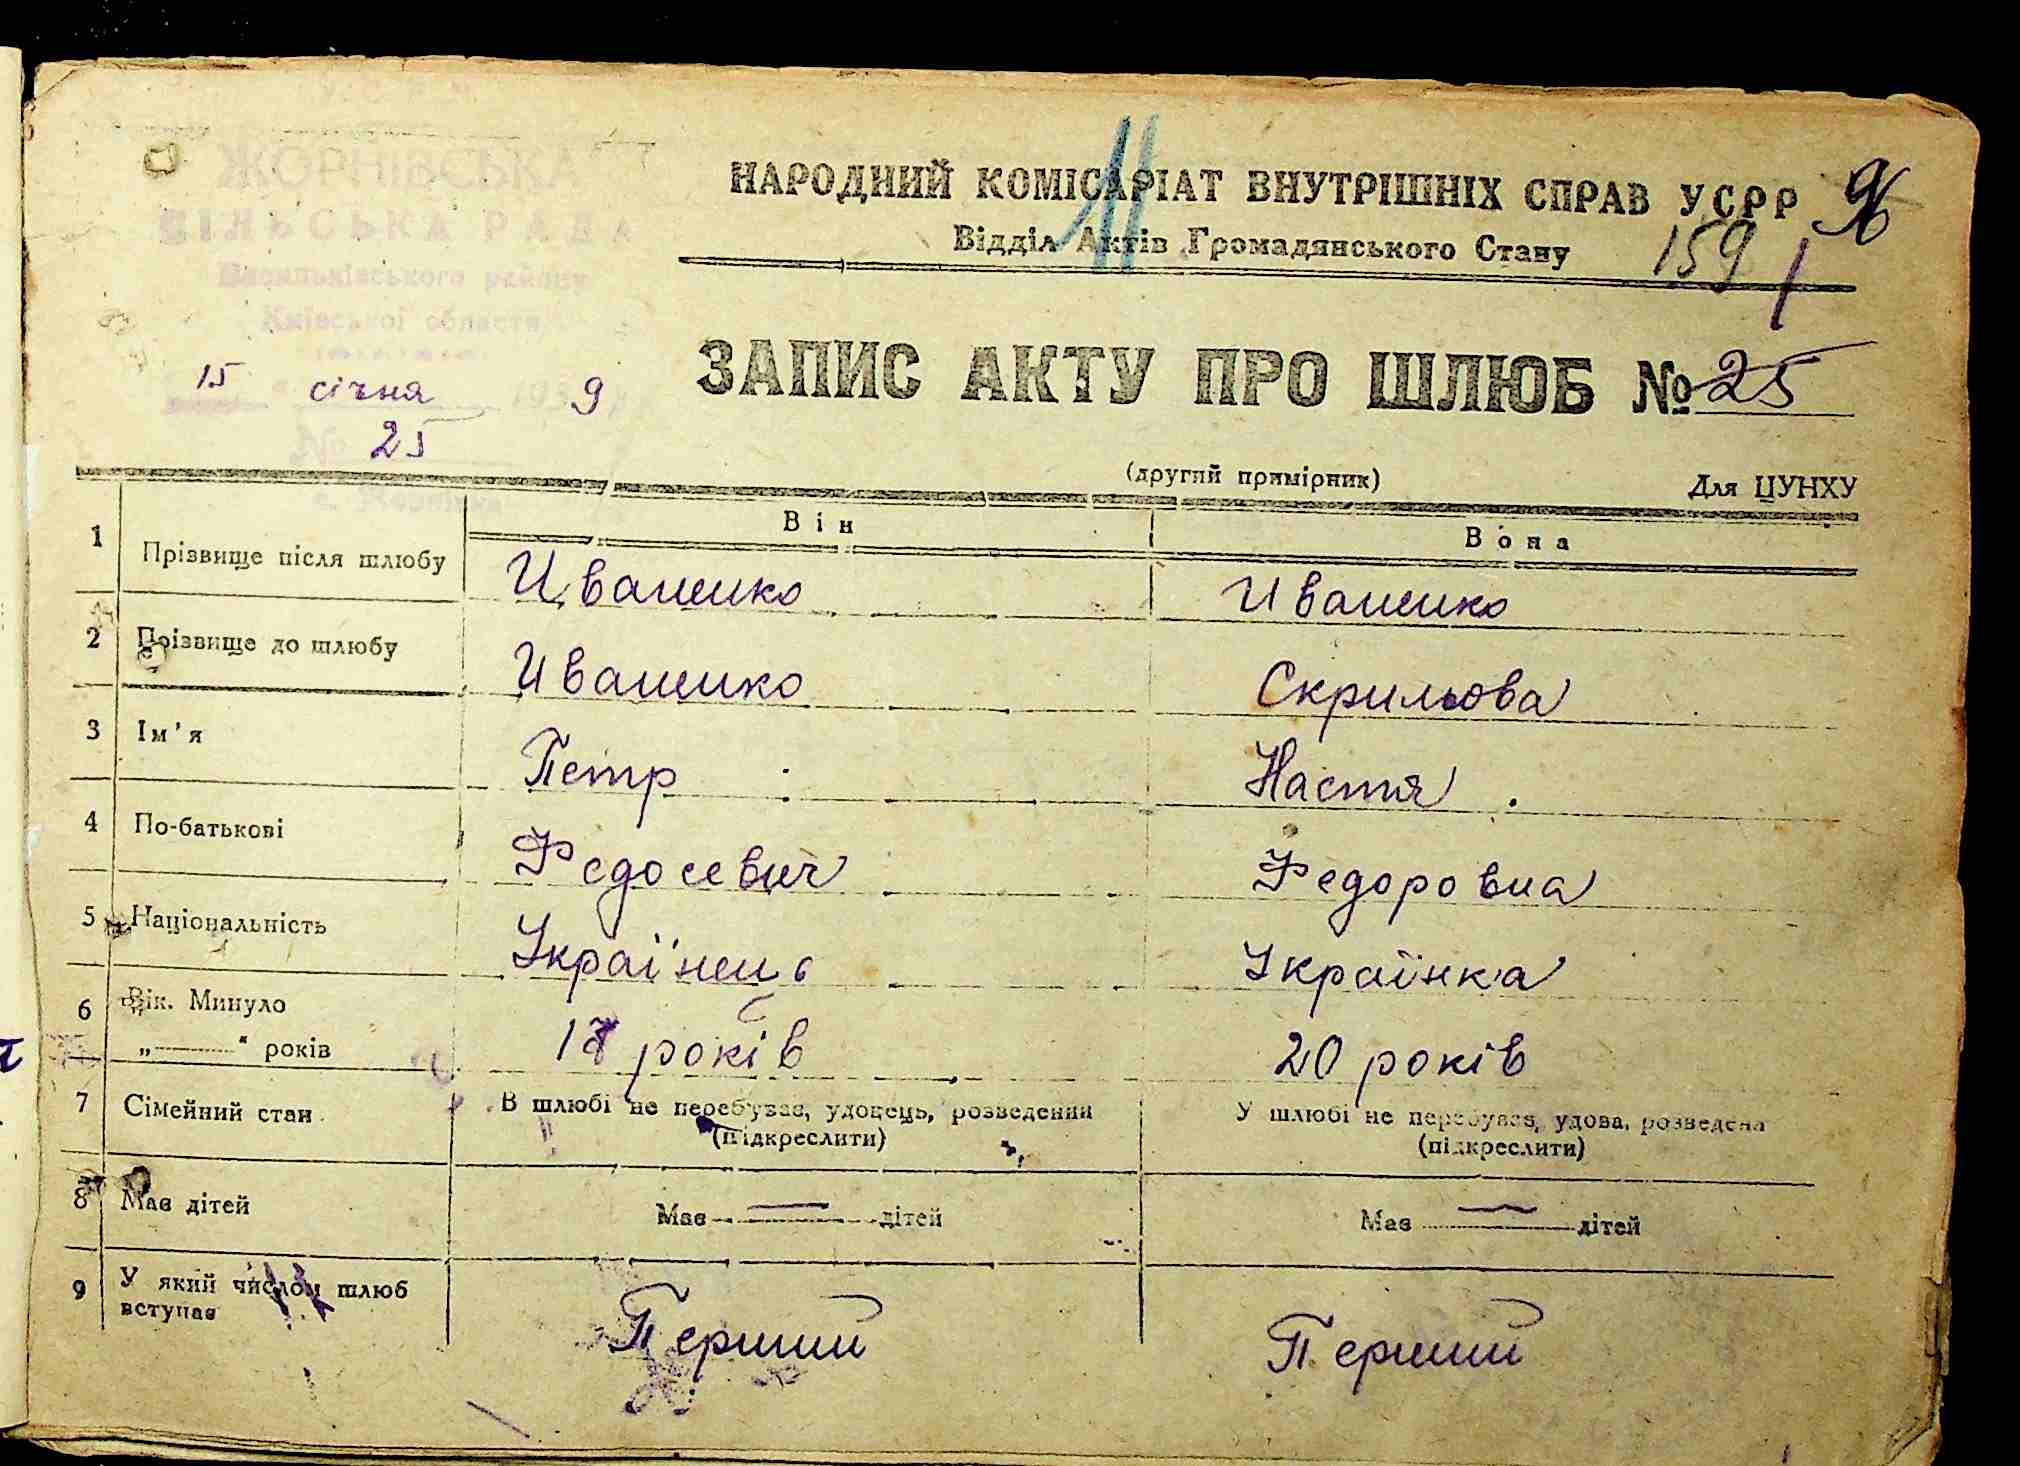 ЖОРНІВСЬКА
СІЛЬСЬКА РАДА
Васильківського району
Київської области
15 січня 193 9 р
№ 25
с. Жорнівка
НАРОДНИЙ КОМІСАРІАТ ВНУТРІШНІХ СПРАВ УСРР 96
Відділ Актів Громадянського Стану 159
11
ЗАПИС АКТУ ПРО ШЛЮБ № 25
(другий примірник) Для ЦУНХУ
Він Вона
1 Прізвище після шлюбу Иваненко Иваненко
2 Прізвище до шлюбу Иваненко Скрильова
3 Ім'я Петр Настя
4 По-батькові Федосевич Федоровна
5 Національність Українець Українка
6 Вік. Минуло
„———“ років 18 років 20 років
7 Сімейний стан В шлюбі не перебуває, удовець, розведений У шлюбі не перебуває, удова, розведена
(підкреслити) (підкреслити)
8 Має дітей Має — дітей Має — дітей
9 У який числом шлюб
вступає Перший Перший